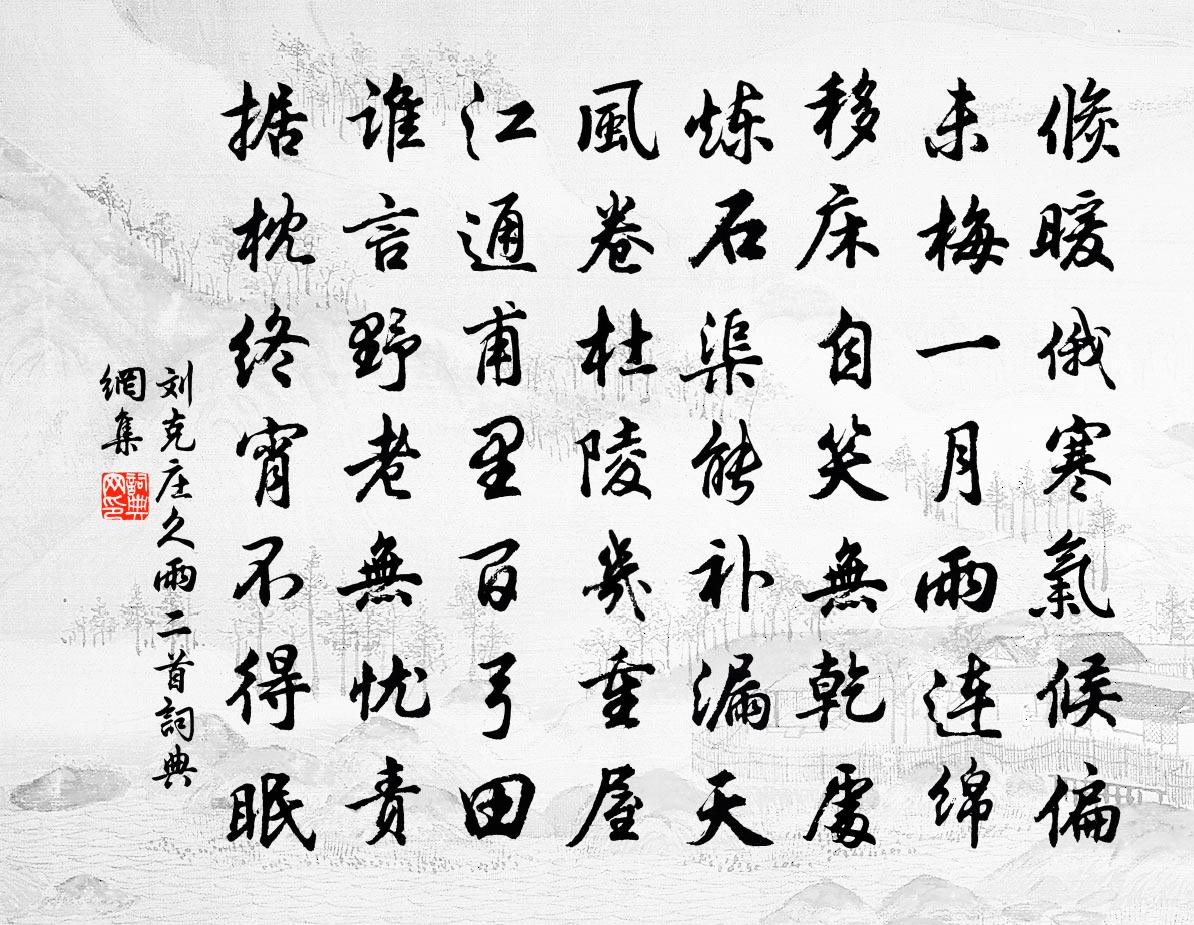 倏暖俄寒氣候偏
未梅一月雨連綿
移床自笑無乾處
炼石渠能补漏天
風卷杜陵幾重屋
江通甫里百弓田
誰言野老無忧責
据枕终宵不得眠
刘克庄久雨二首詞典
網集
詞典
网印